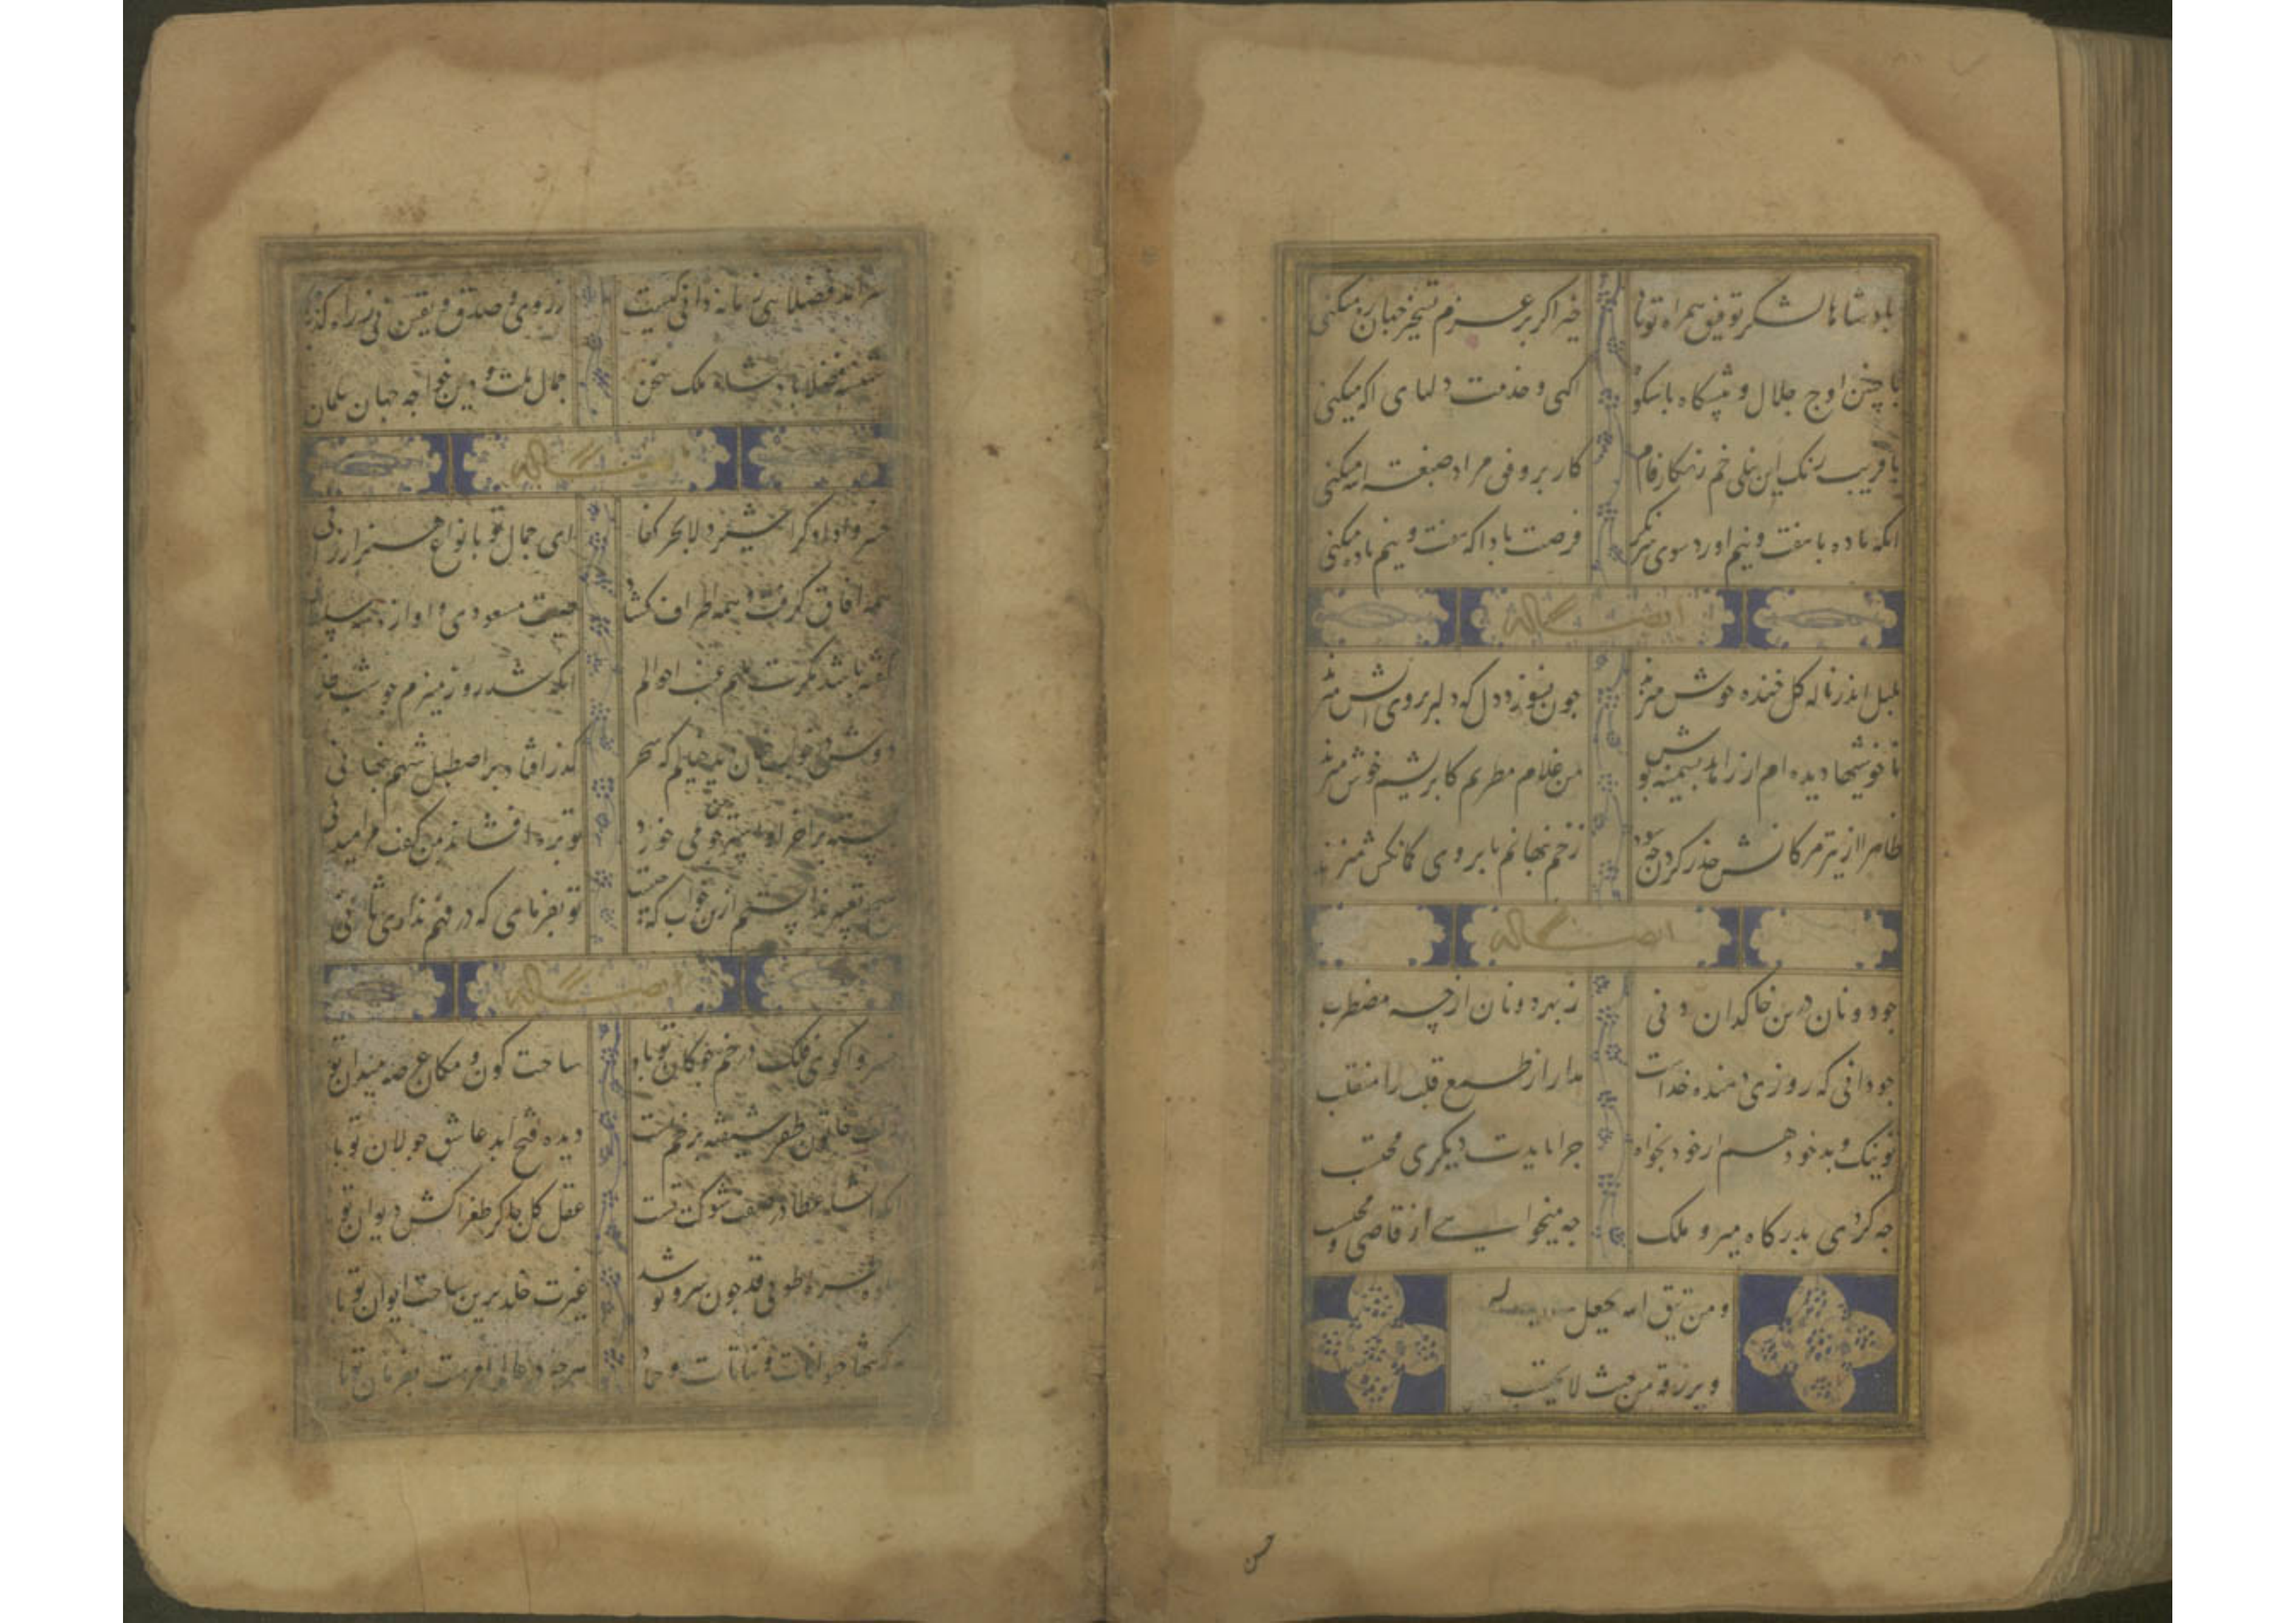 پادشاها لشکر توفیق همراه تواند خیز اگر بر عزم تسخیر جهان ره میکنی
با چنین اوج جلال و پیشگاه با شکوه اکهی و خدمت دلهای اکه میکنی
با فریب رنک این نیلی خم زنکار فام کار بر وفق مراد صبغة الله میکنی
انکه ده با هفت و نیم اورد سوی نکرد فرصت بادا که هفت و نیم با ده میکنی
ایضا له
بلبل اندر ناله کل خنده خوش میزند چون نسوزد دل که دلبر در وی اتش میزند
ناخوشیها دیده ام از زاهد پشمینه پوش من غلام مطربم کابریشم خوش میزند
ظاهرا از تیر مژکانش حذر کردن چه سود زخم پنهانم بابروی کمانکش میزند
ایضا له
چو دونان درین خاکدان دنی ز بهر دو نان از چه مضطرب
چو دانی که روزی دهنده خداست مدار از طمع قلب را منقلب
تو نیک و بد خود هم از خود بخواه چرا بایدت دیکری محتسب
چه کردی بدرکاه میر و ملک چه میخواهی از قاضی و محتسب
و من یتق الله یجعل له
و یرزقه من حیث لا یحتسب
حسن
سرامد فضلای زمانه دانی کیست ز روی صدق و یقین نی ز راه کذب
شهنشه فضلا پادشاه ملک سخن جمال ملت و دین خواجه جهان سلمان
ایضا له
خسروا دادکرا شیردلا بحر کفا ای جمال تو بانواع هنر ارزانی
همه افاق کرفت و همه اطراف کشاد صیت مسعودی و اوازه شه سلطانی
کفته باشد مکرت ملهم غیب احوالم انکه شد روز منیرم چو شب ظلمانی
دوش در خواب چنان دید خیالم که سحر کذر افتاد بر اصطبل شهم پنهانی
بسته بر اخور او استر من جو می خورد توبره افشاند من کفت مرا میدانی
هیچ تعبیر نمیدانمش این خواب که چیست تو بفرمای که در فهم نداری ثانی
ایضا له
خسروا کوی فلک در خم چوکان تو باد ساحت کون و مکان عرصه میدان تو باد
زلف خاتون ظفر شیفته پرچم تست دیده فتح ابد عاشق جولان تو باد
ای که انشاء عطارد صفت شوکت تست عقل کل چاکر طغراکش دیوان تو باد
طیره جلوه طوبی قد چون سرو تو شد غیرت خلد برین ساحت ایوان تو باد
نه بتنها حیوانات و نباتات و جماد هرچه در عالم امرست بفرمان تو باد